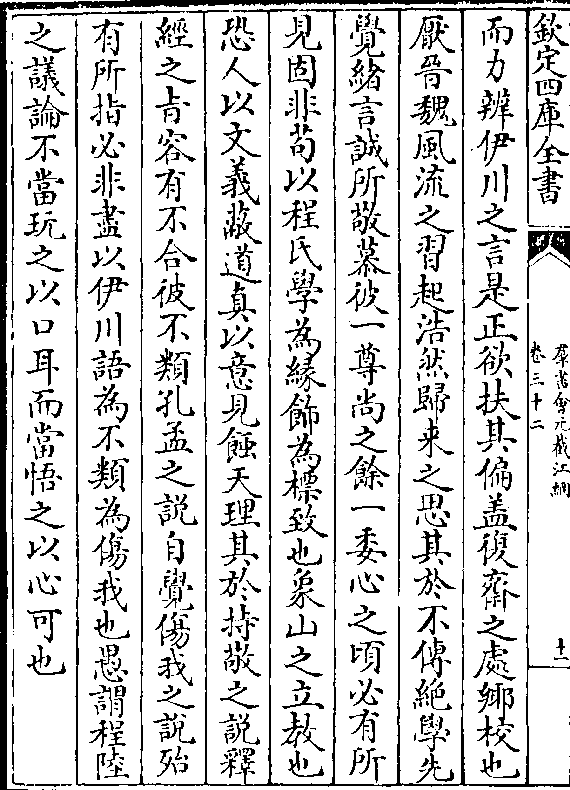 欽定四庫全書
羣書會元截江網
卷三十二
十一
而力辨伊川之言是正欲扶其偏盖復齋之處鄉校也
厭晉魏風流之習起浩然歸来之思其於不傳絶學先
覺緒言誠所敬慕彼一尊尚之餘一委心之頃必有所
見固非苟以程氏學為緣飾為標致也象山之立教也
恐人以文義蔽道真以意見蝕天理其於持敬之說釋
經之㫖容有不合彼不類孔孟之說自覺傷我之說殆
有所指必非盡以伊川語為不類為傷我也愚謂程陸
之議論不當玩之以口耳而當悟之以心可也